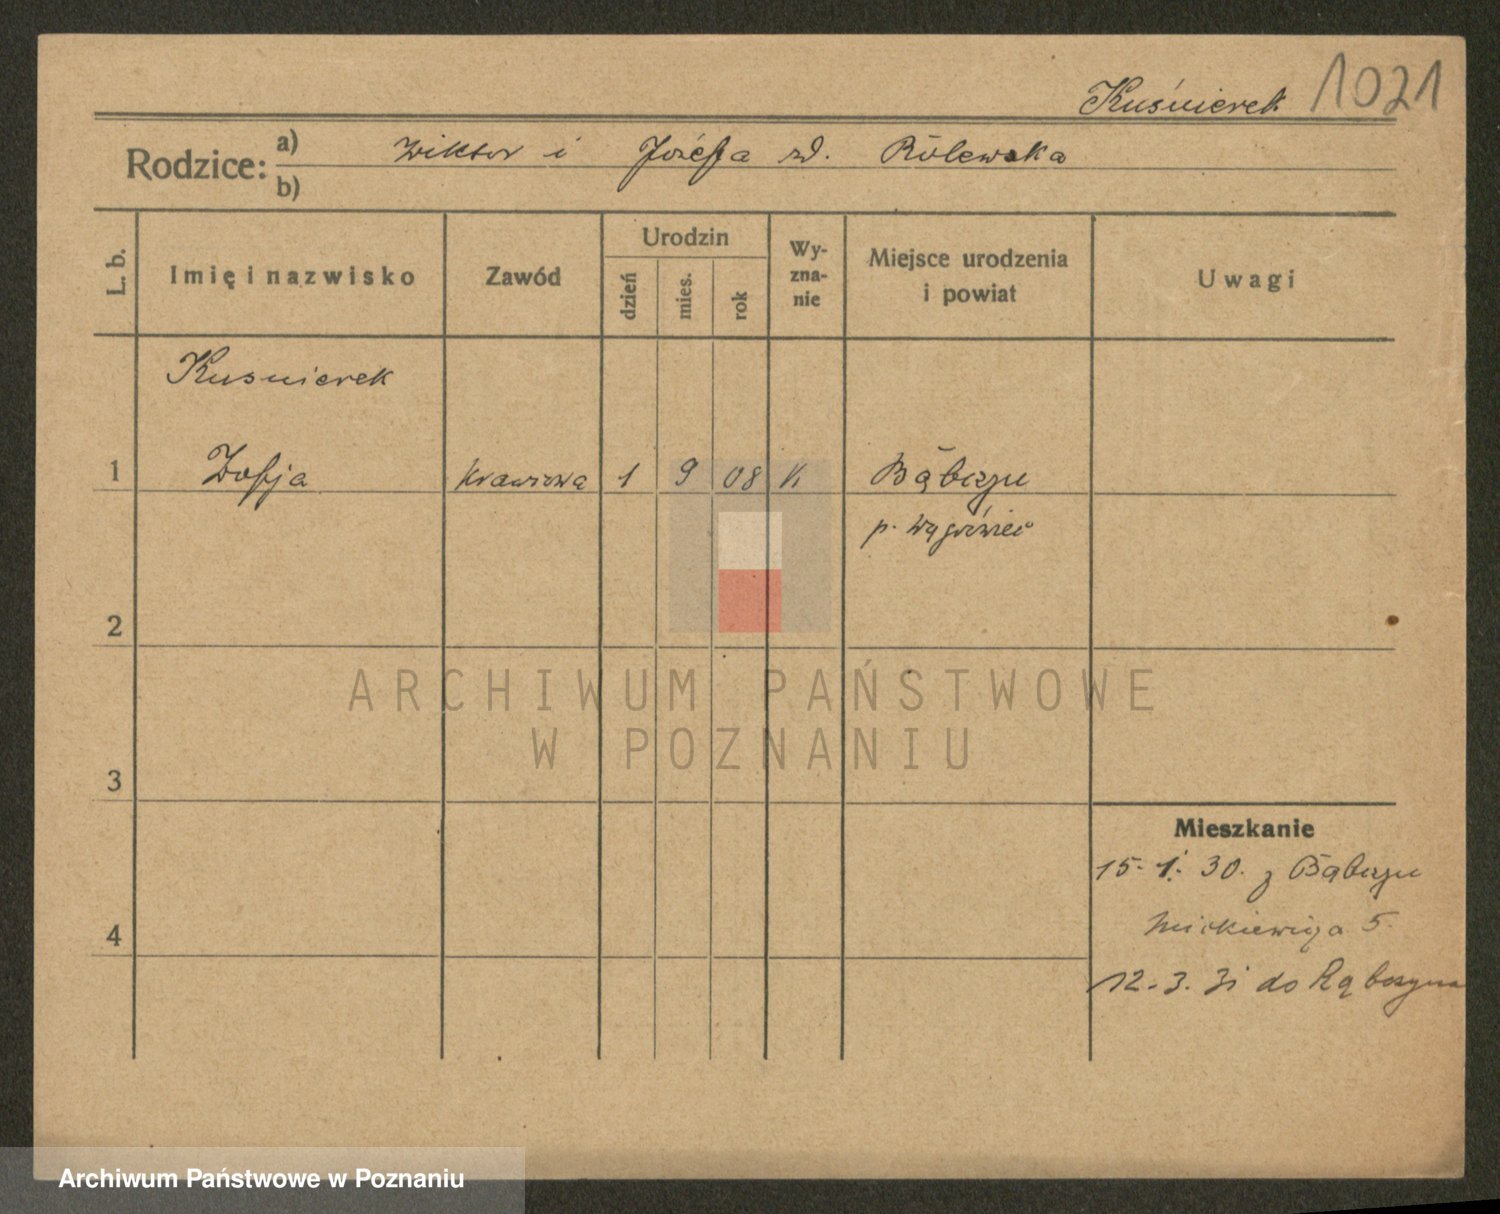 Kuśnierek 1021
Rodzice: a) Wiktor i Józefa zd. Rólewska
b)
L. b.
Imię i nazwisko
Zawód
Urodzin
dzień
mies.
rok
Wy-
zna-
nie
Miejsce urodzenia
i powiat
Uwagi
Kusnierek
1 Zofja Krawcowa 1 9 08 K Bąblzyn
p. Wągrówiec
2
3
4
ARCHIWUM PAŃSTWOWE
W POZNANIU
Mieszkanie
15. 1. 30. z
Mickiewicza 5.
12. 3. 31 do
Archiwum Państwowe w Poznaniu